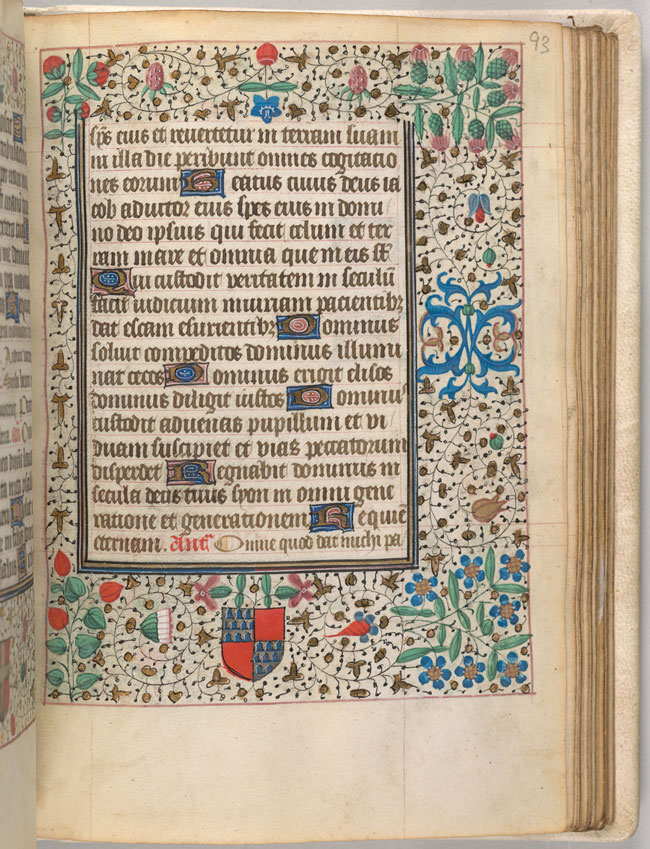 93
sps eius et revertetur in terram suam
in illa die peribunt omnes cogitacio
nes eorum Beatus cuius deus ia
cob adiutor eius spes eius in domi
no deo ipsuis qui fecit celum et ter
ram mare et omnia que in eis st
Qui custodit veritatem in seculu
facit iudicium iniuriam pacientibz
dat escam esurientibz Dominus
soluit compeditos dominus illumi
nat cecos Dominus erigit elisos
dominus diligit iustos Dominu
custodit aduenas pupillum et vi
duam suscipiet et vias peccatorum
disperdet Regnabit dominus in
secula deus tuus syon in omni gene
ratione et generationem Requie
eternam. Ant Omne quod dat michi pa